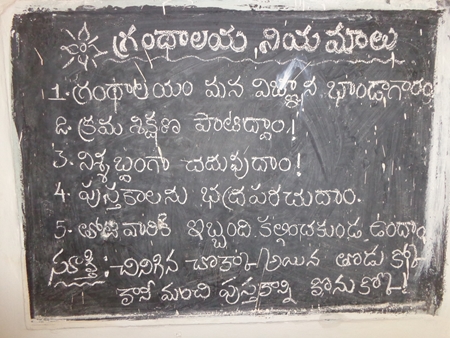 గ్రంథాలయ నియమాలు
1. గ్రంథాలయం మన విజ్ఞాన భాండాగారం
2 క్రమశిక్షణ పాటిద్దాం!
3. నిశ్శబ్దంగా చదువుదాం!
4. పుస్తకాలను భద్రపరచుదాం.
5. తోటివారికి ఇబ్బంది కల్గించకుండ ఉందాం
సూక్తి: చినిగిన చొక్కా అయిన తొడుక్కో
కానీ మంచి పుస్తకాన్ని కొనుక్కో!